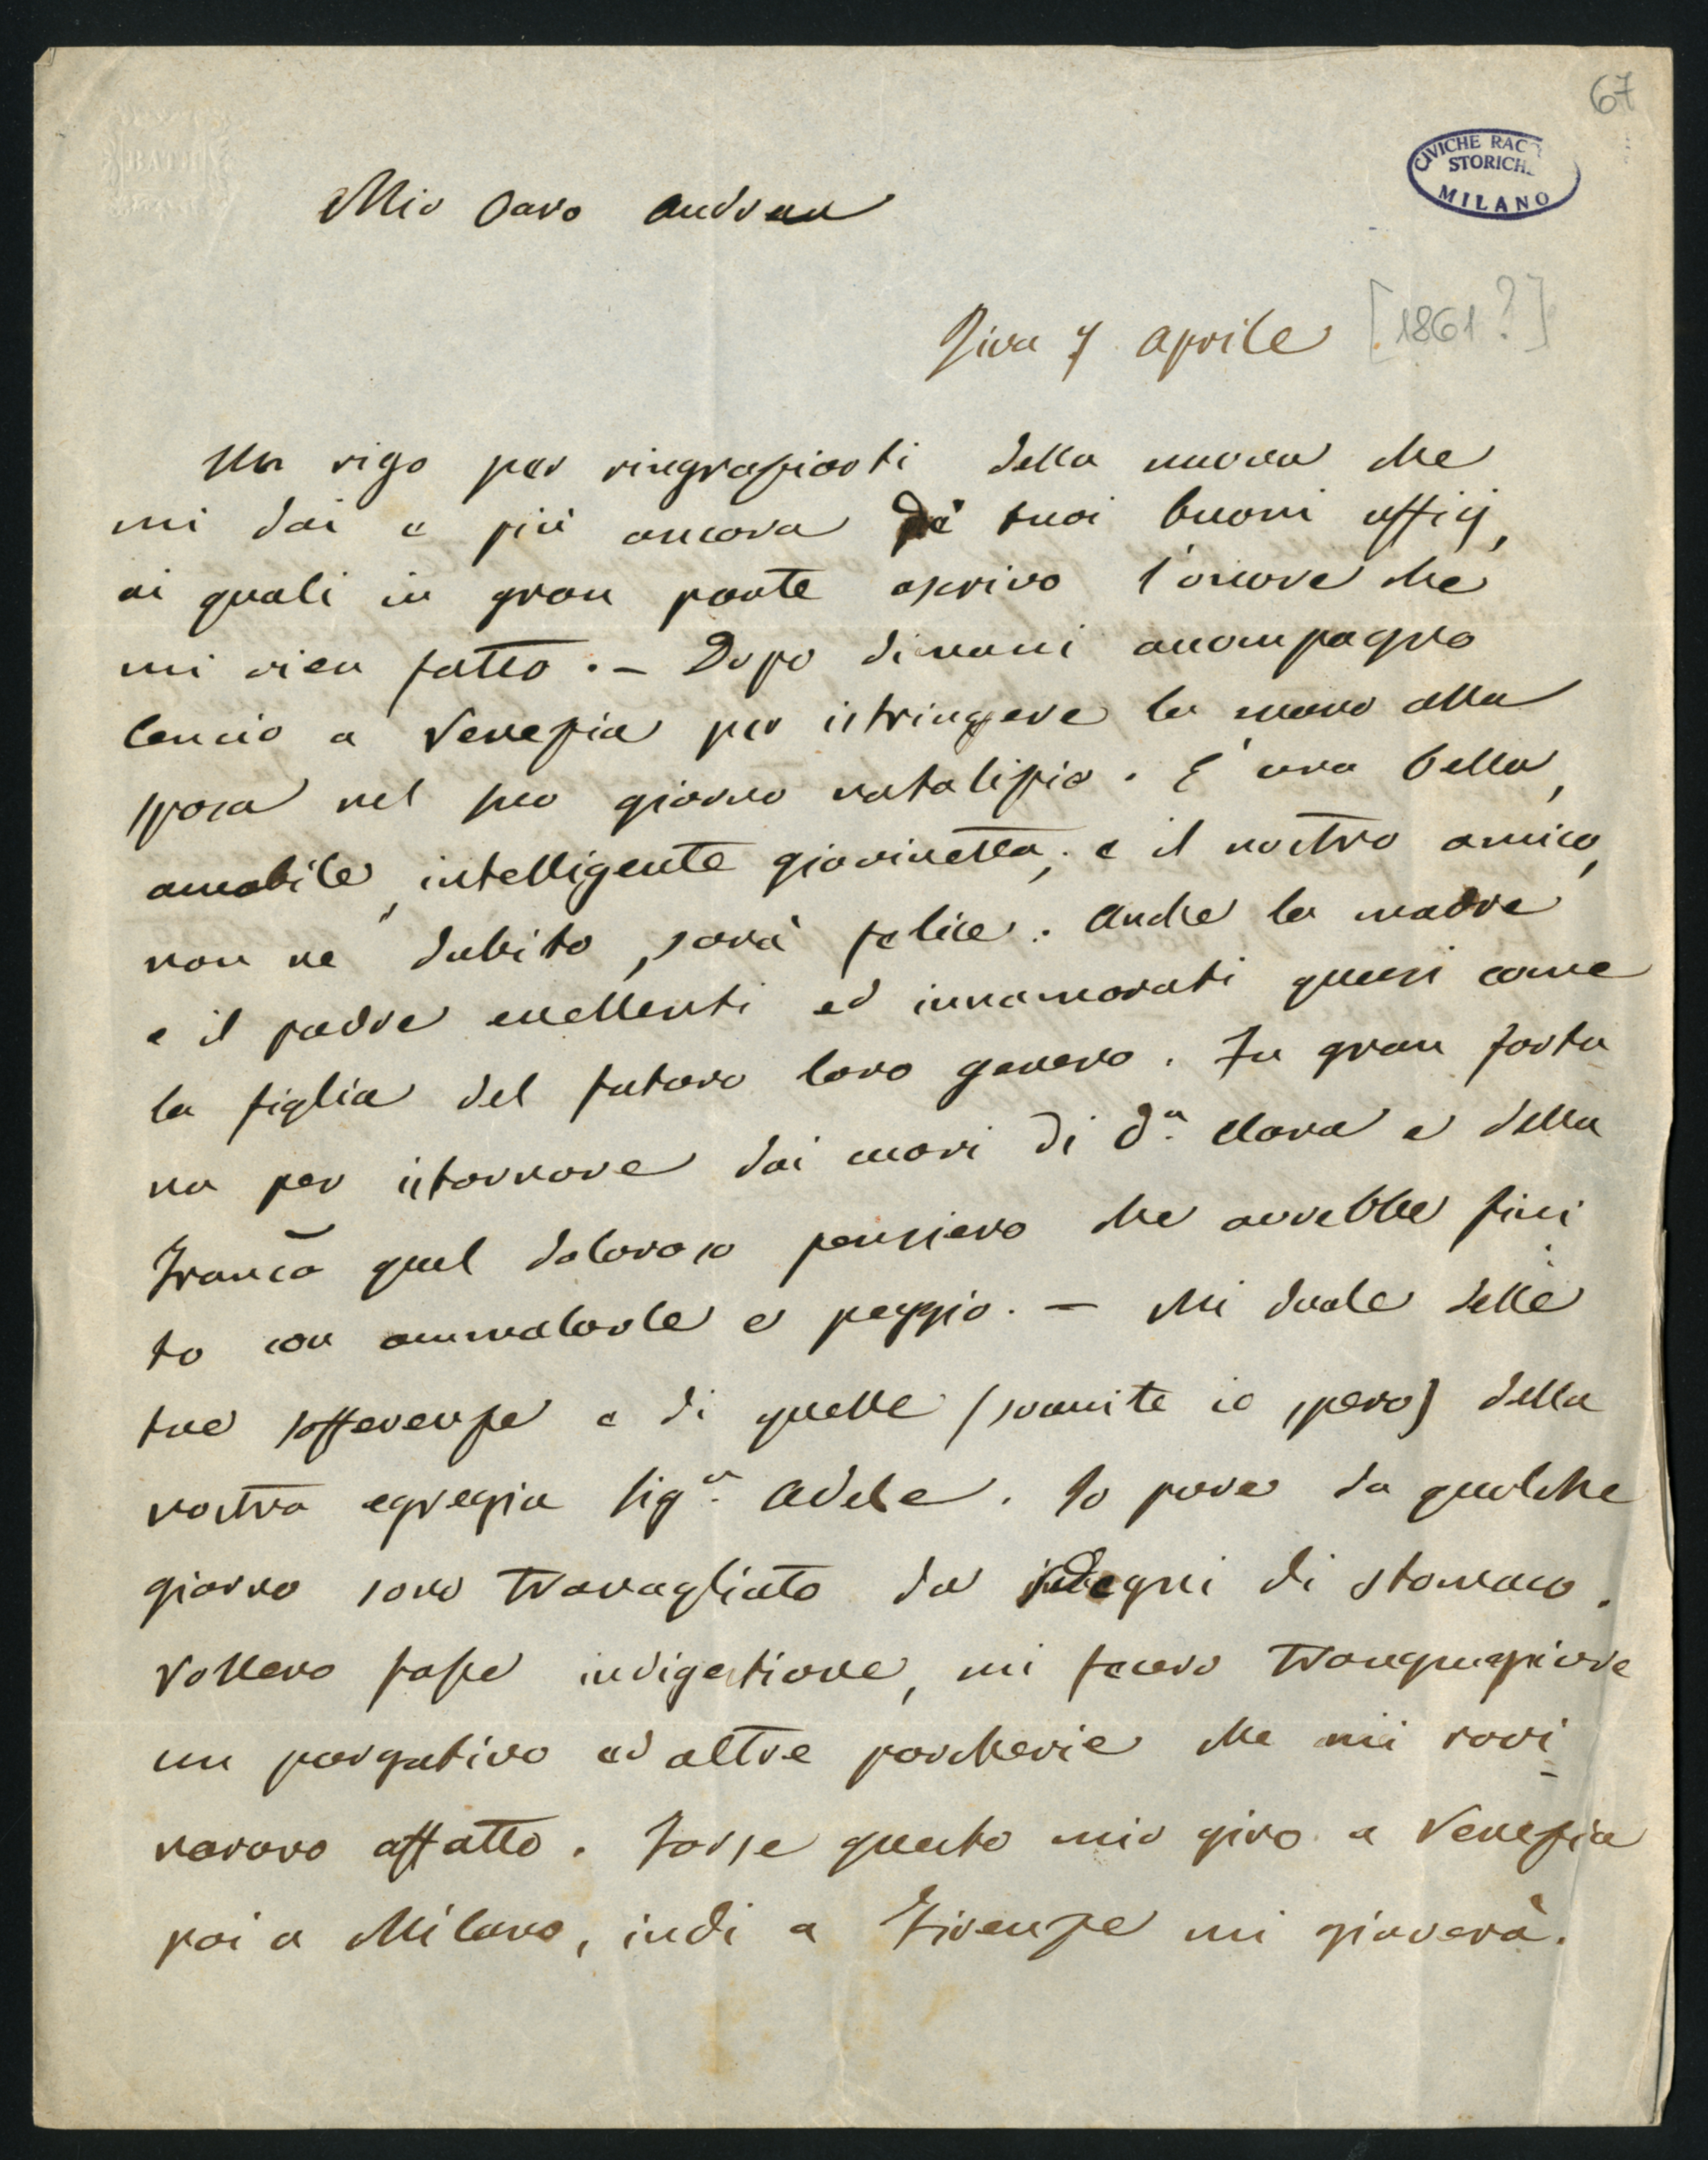 67
CIVICHE RACC
STORICH
MILANO
BATH
Mio Caro Andrea
Riva 7 Aprile [1861?]
Un rigo per ringraziarti della nuova che
mi dai e più ancora de' tuoi buoni officj,
ai quali in gran parte ascrivo l'onore che
mi vien fatto. — Dopo dimani accompagno
Cencio a Venezia per istringere la mano alla
sposa nel suo giorno natalizio. È una bella,
amabile, intelligente giovinetta; e il nostro amico,
non ne dubito, sarà felice. Anche la madre
e il padre eccellenti ed innamorati quasi come
la figlia del futuro loro genero. Fu gran fortu
na per istornare dai cuori di D.a Clara e della
Franca quel doloroso pensiero che avrebbe fini
to con ammalarle e peggio. — Mi duole delle
tue sofferenze e di quelle (svanite io spero) della
nostra egregia Sig.a Adele. Io pure da qualche
giorno sono travagliato da sdegni di stomaco.
Vollero fosse indigestione, mi fecero trangugiare
un purgativo ed altre porcherie che mi rovi-
narono affatto. Forse questo mio giro a Venezia
poi a Milano, indi a Firenze mi gioverà.